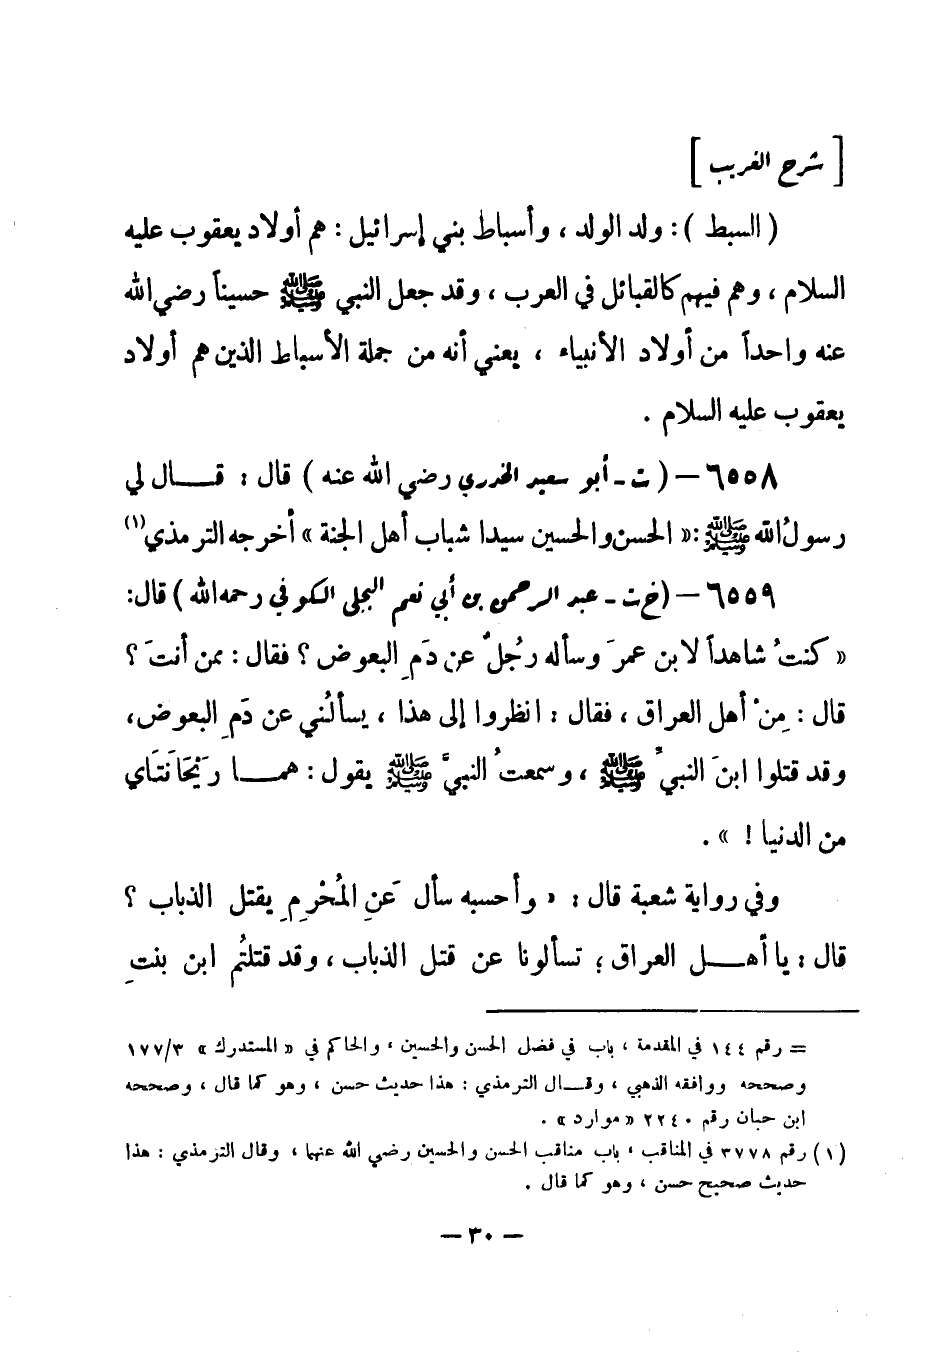 [ شرح الغريب ]
( السبط ) : ولد الولد ، وأسباط بني إسرائيل : هم أولاد يعقوب عليه
السلام ، وهم فيهم كالقبائل في العرب ، وقد جعل النبي ﷺ حسيناً رضي الله
عنه واحداً من أولاد الأنبياء ، يعني أنه من جملة الأسباط الذين هم أولاد
يعقوب عليه السلام .
٦٥٥٨ – ( ت - أبو سعيد الخدري رضي الله عنه ) قال : قال لي
رسولُ الله ﷺ : « الحسن والحسين سيدا شباب أهل الجنة » أخرجه الترمذي (١)
٦٥٥٩ – ( خ ت - عبد الرحمن بن أبي نعم البجلي الكوفي رحمه الله ) قال :
« كنتُ شاهداً لابن عمرَ وسأله رجُلٌ عن دَمِ البعوض ؟ فقال : ممن أنتَ ؟
قال : مِنْ أهل العراق ، فقال : انظروا إلى هذا ، يسألُني عن دَمِ البعوض ،
وقد قتلوا ابنَ النبيِّ ﷺ ، وسمعتُ النبيَّ ﷺ يقول : هما رَيْحَانَتَاي
من الدنيا ! » .
وفي رواية شعبة قال : « وأحسبه سأل عَنِ المُحْرِمِ يقتل الذباب ؟
قال : يا أهل العراق ؛ تسألونا عن قتل الذباب ، وقد قتلتُم ابن بنتِ
= رقم ١٤٤ في المقدمة ، باب في فضل الحسن والحسين ، والحاكم في « المستدرك » ١٧٧/٣
وصححه ووافقه الذهبي ، وقال الترمذي : هذا حديث حسن ، وهو كما قال ، وصححه
ابن حبان رقم ٢٢٤٠ « موارد » .
(١) رقم ٣٧٧٨ في المناقب ، باب مناقب الحسن والحسين رضي الله عنهما ، وقال الترمذي : هذا
حديث صحيح حسن ، وهو كما قال .
– ٣٠ –